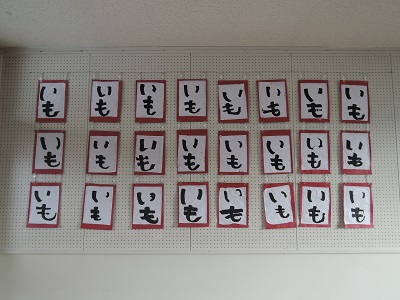 いも いも いも いも いも いも いも いも
いも いも いも いも いも いも いも いも
いも いも いも いも いも いも いも いも